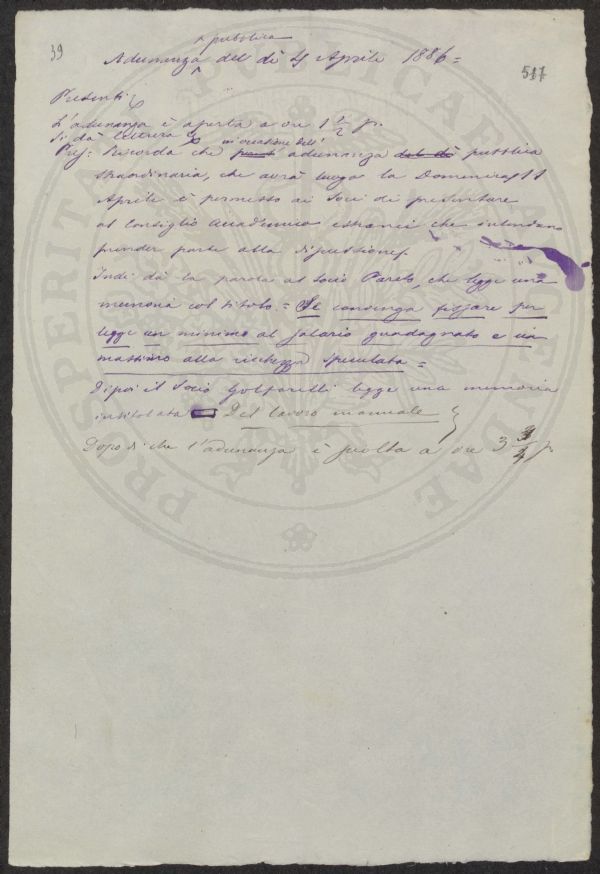 39
pubblica
Adunanza del dì 4 Aprile 1886 =
517
Presenti
L'adunanza è aperta a ore 1 1/2 p.
Si dà lettura
in occasione dell'
Pres: Ricorda che adunanza del dì pubblica
straordinaria, che avrà luogo la Domenica 11
Aprile è permesso ai Soci di presentare
al Consiglio Accademico estranei che intendano
prender parte alla discussione.
Indi dà la parola al socio Pareto, che legge una
memoria col titolo = Se convenga fissare per
legge un minimo al salario guadagnato e un
massimo alla ricchezza speculata =
Dipoi il Socio Golfarelli legge una memoria
intitolata Del lavoro manuale
Dopo di che l'adunanza è sciolta a ore 3 3/4 p.
PROSPERITATI PUBLICAE AUGENDAE